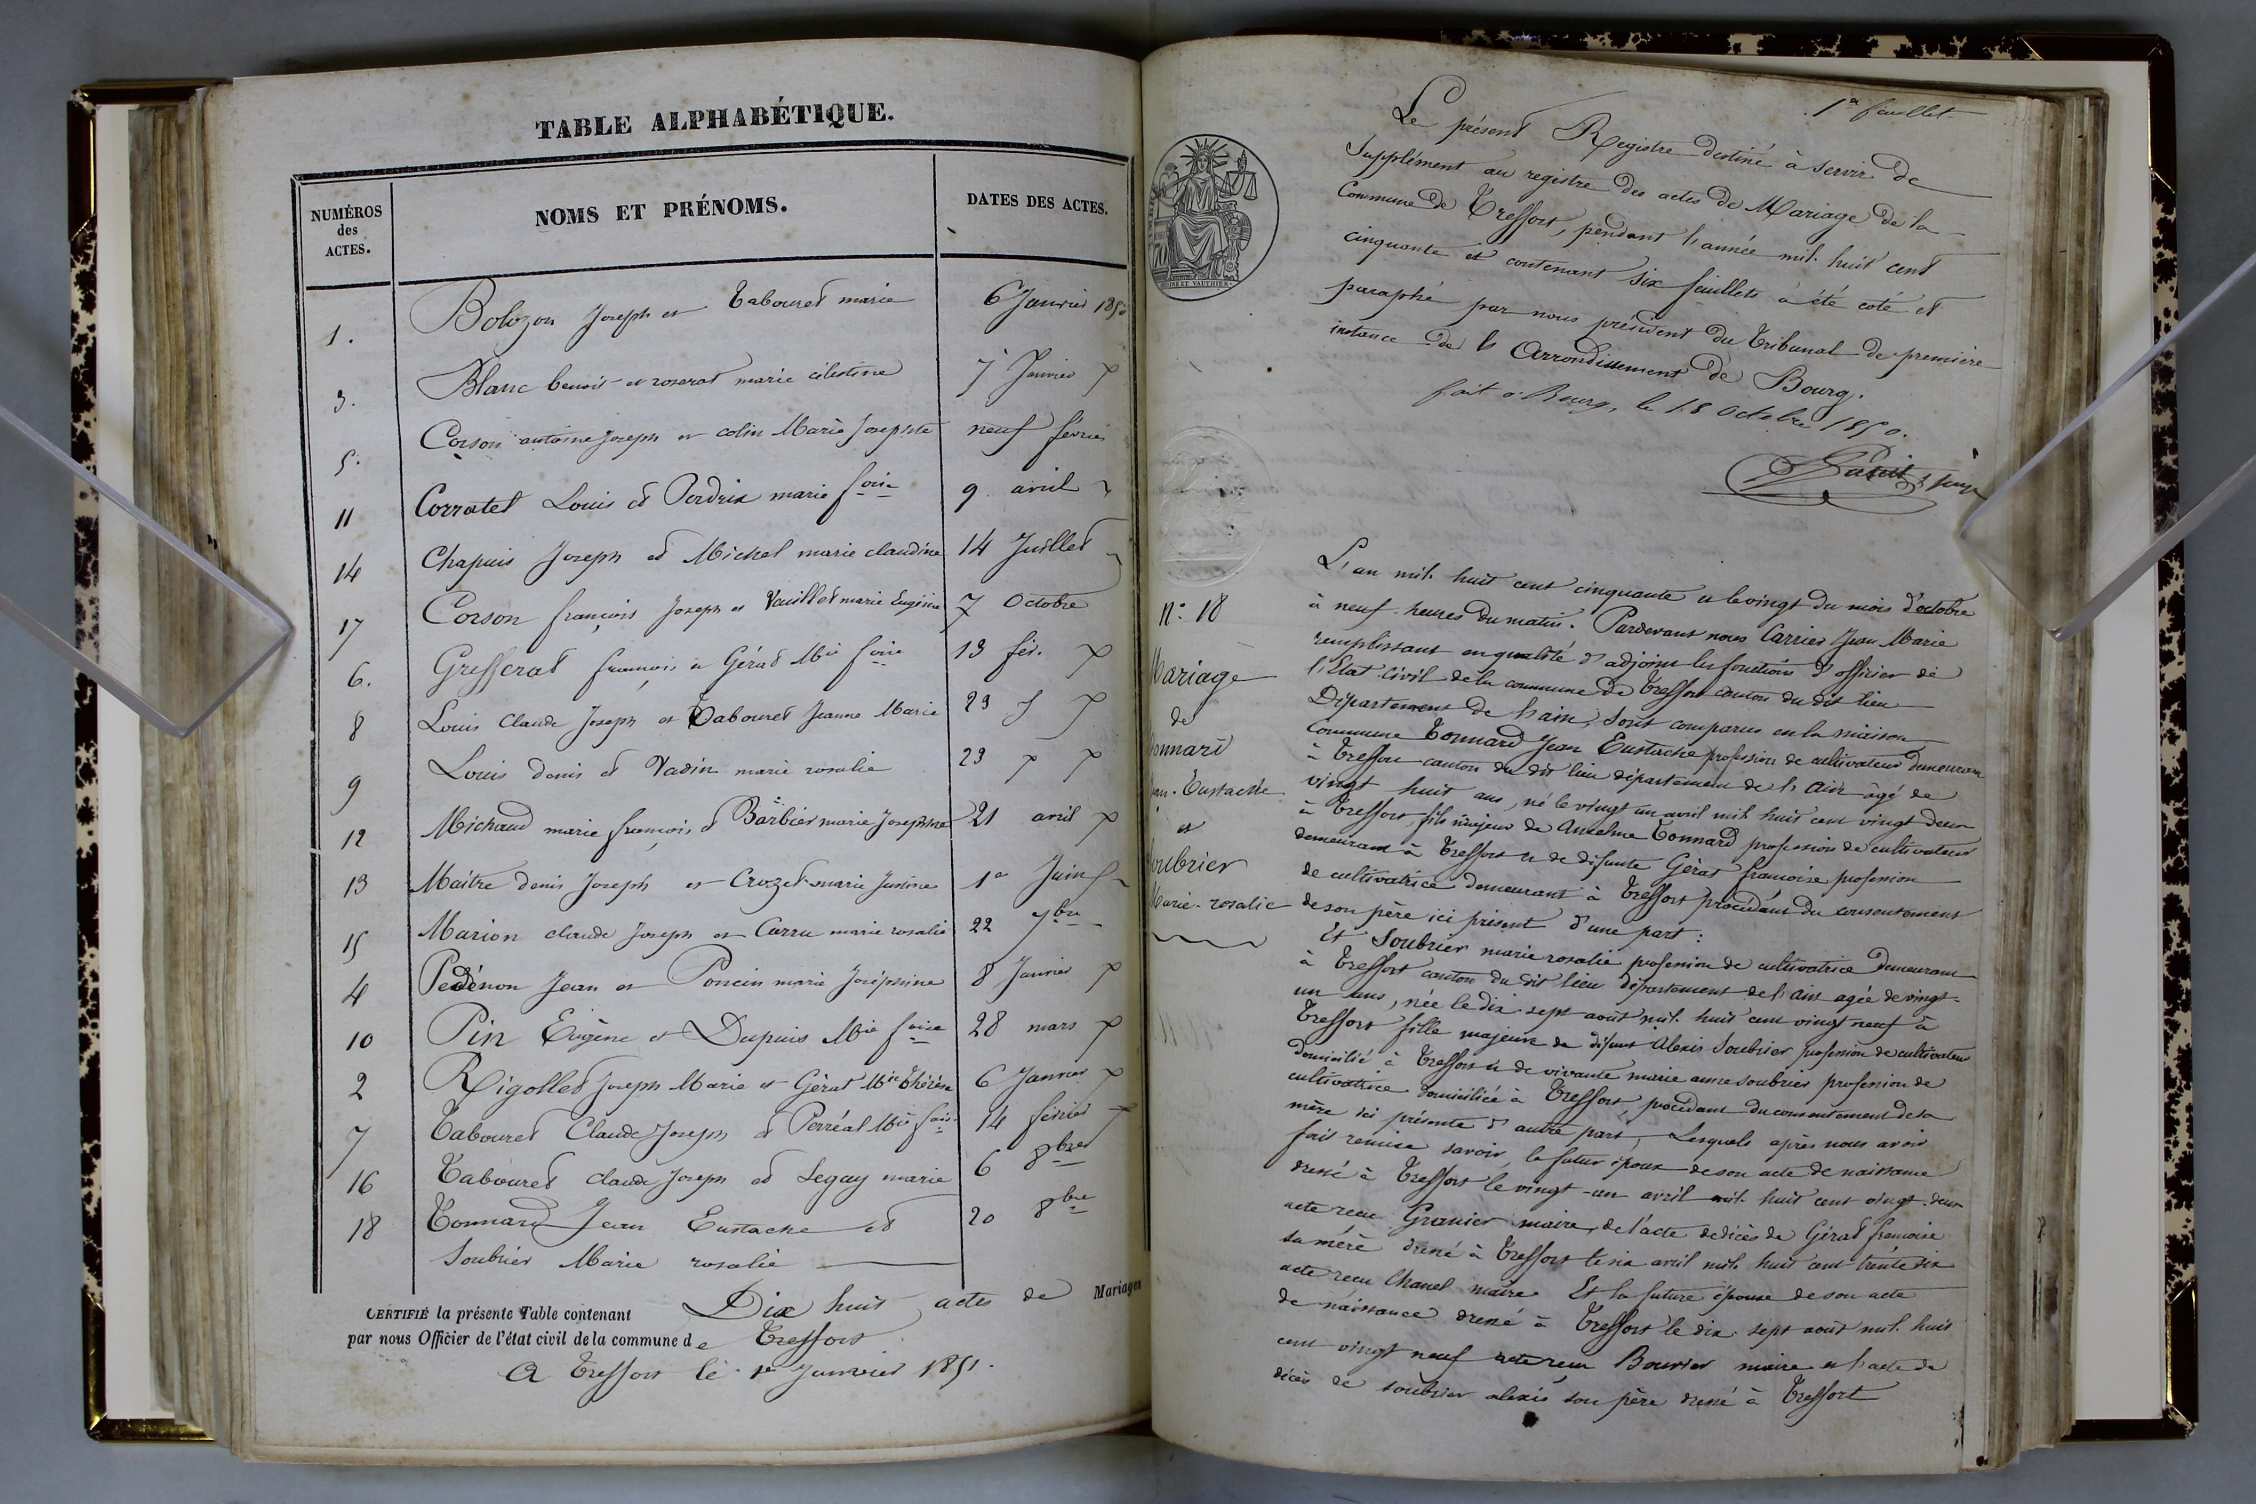 TABLE ALPHABÉTIQUE.
NUMÉROS
des
ACTES.
NOMS ET PRÉNOMS.
DATES DES ACTES.
1. Bolozon Joseph et Tabouret marie 6 Janvier 1850
3. Blanc benoit et roserat marie célestine 7 Janvier
5. Corson antoine Joseph et colin Marie Josephte neuf février
11 Corratet Louis et Perdrix marie foise 9 avril
14 Chapuis Joseph et Michel marie claudine 14 Juillet
17 Corson françois Joseph et Vaillet marie Eugénie 7 Octobre
6. Grefferat françois et Gérat Mie foise 13 fév.
8 Louis Claude Joseph et Tabouret Jeanne Marie 23
9 Louis denis et Vadin marie rosalie 23
12 Michaud marie françois et Barbier marie Josephine 21 avril
13 Maitre denis Joseph et Crozet marie Justine 1er Juin
15 Marion claude Joseph et Carru marie rosalie 22 7bre
4 Pedénon Jean et Poncin marie Joséphine 8 Janvier
10 Pin Eugène et Dupuis Mie foise 28 mars
2 Rigollet Joseph Marie et Gérat Mie thérèse 6 Janvier
7 Tabouret Claude Joseph et Perréal Mie fois 14 février
16 Tabouret claude Joseph et Legay marie 6 8bre
18 Tonnard Jean Eustache et 20 8bre
Soubrier Marie rosalie
CERTIFIÉ la présente Table contenant Dix huit actes de Mariages
par nous Officier de l'état civil de la commune de Treffort
A Treffort le 1er Janvier 1851.
1er feuillet
Le présent Registre destiné à servir de
Supplément au registre des actes de Mariage de la
Commune de Treffort, pendant l'année mil huit cent
cinquante et contenant six feuillets a été coté et
paraphé par nous président du Tribunal de première
instance de l'Arrondissement de Bourg.
fait à Bourg, le 18 Octobre 1850.
N° 18
Mariage
de
Tonnard
Jean-Eustache
et
Soubrier
Marie-rosalie
L'an mil huit cent cinquante et le vingt du mois d'octobre
à neuf heures du matin. Pardevant nous Carrier Jean Marie
remplissant en qualité d'adjoint les fonctions d'officier de
l'Etat civil de la commune de Treffort canton du dit lieu
Département de l'ain, sont comparus en la maison
Commune Tonnard Jean Eustache profession de cultivateur demeurant
à Treffort canton du dit lieu département de l'Ain âgé de
vingt huit ans, né le vingt un avril mil huit cent vingt deux
à Treffort, fils majeur de Anselme Tonnard profession de cultivateur
demeurant à Treffort et de défunte Gérat françoise profession
de cultivatrice demeurant à Treffort procédant du consentement
de son père ici présent d'une part:
Et Soubrier marie rosalie profession de cultivatrice demeurant
à Treffort canton du dit lieu département de l'Ain agée de vingt-
un ans, née le dix sept août mil huit cent vingt neuf à
Treffort fille majeure de défunt Alexis Soubrier profession de cultivateur
domicilié à Treffort et de vivante marie anne soubrier profession de
cultivatrice domiciliée à Treffort, procédant du consentement de sa
mère ici présente d'autre part, Lesquels après nous avoir
fait remise savoir, le futur époux de son acte de naissance
dressé à Treffort le vingt-un avril mil huit cent vingt-deux
acte reçu Granier maire, de l'acte de décès de Gérat françoise
sa mère dressé à Treffort le six avril mil huit cent trente six
acte reçu Chanel maire. Et la future épouse de son acte
de naissance dressé à Treffort le dix sept août mil huit
cent vingt neuf acte reçu Bouvier maire et l'acte de
décès de soubrier alexis son père dressé à Treffort